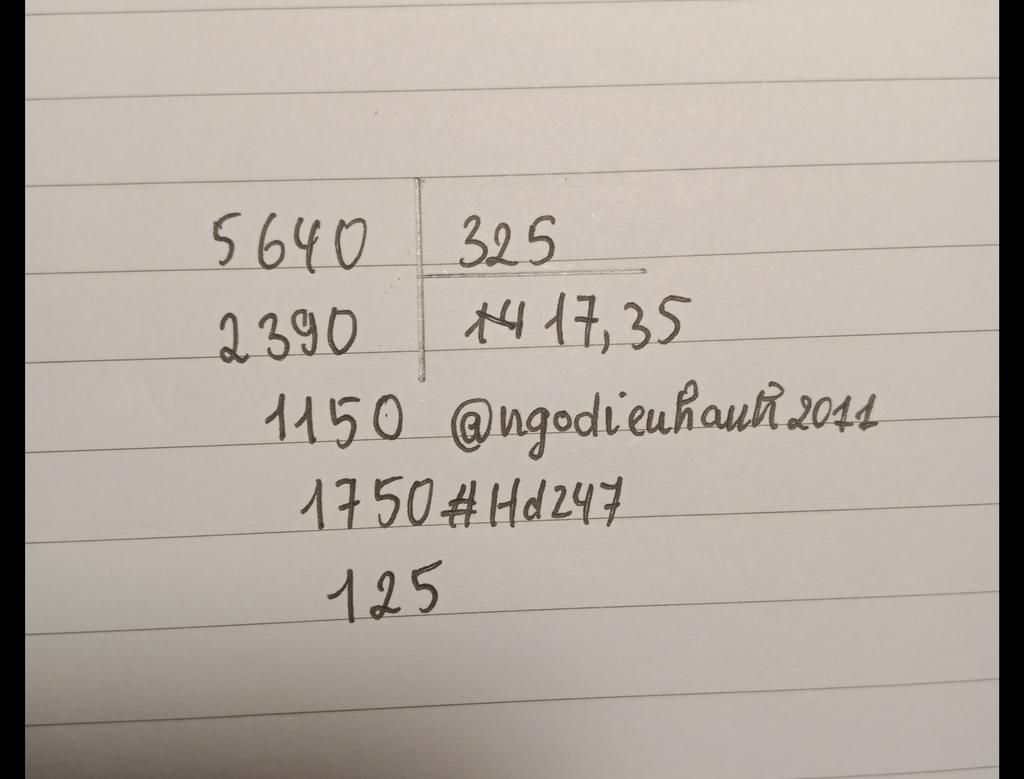 5640 325
2390 17,35
1150 @ngodieuhauk2011
1750 #Hd247
125